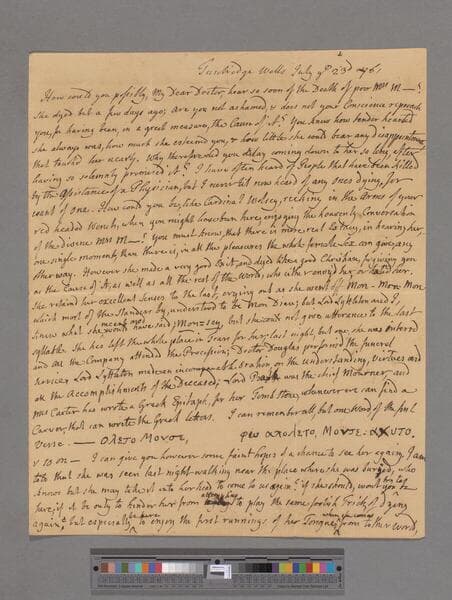 Tunbridge Wells July ye 23d 1761
How could you possibly, My Dear Doctor, hear so soon of the Death of poor Mrs M—?
She dyed but a few days ago; Are you not ashamed, & does not your Conscience reproach
you, for having been, in a great measure, the Cause of it? You knew how tender hearted
she always was, how much she esteemed you, & how little she could bear any disappointment
that touched her nearly. Why therefore did you delay coming down to her so long, after
having so solemnly promised it? I have often heard of People that have been killed
by the Assistance of a Physician, but I never till now heard of any ones dying, for
want of one. How could you be, like Cardinal Wolsey, reeking in the Arms of your
red headed Wench, when you might have been here, enjoying the heavenly Conversation
of the divine Mrs M—? You must know, that there is more real Extasy, in hearing her
one single moment than there is, in all the pleasures the whole female Sex can give, any
other way. However she made a very good Exit, and dyed like a good Christian, forgiving you
as the Cause of it, as well as all the rest of the World, who either envyed her, or hated her.
She retained her excellent Senses to the last, crying out as she went off Mon- Mon- Mon
which most of the Standers by, understood to be Mon Dieu; but Lord Lyttelton and I,
knew what she meant & would have said; Monsey, but she could not give utterance to the last
syllable. She has left the whole place in Tears for her; last night, but one, she was interred
and all the Company attended the Procession; Doctor Douglas performed the funeral
Service; Lord Lyttelton made an incomparable Oration on the understanding, virtues and
all the accomplishments of the Deceased; Lord Bath was the chief Mourner, and
Mrs Carter has wrote a Greek Epitaph, for her Tomb Stone, whenever we can find a
Carver, that can wrote the Greek letters. I can remember all, but one Word of the first
Verse.
& so on — I can give you however some faint hopes of a chance to see her again, I am
told that she was seen last night walking near the place where she was buryed, who
knows but she may take it into her head to come to us again? if she should, would you be
here; if it be only to hinder her from attempting to play the same foolish Trick of Dying
again, but especially to be here to enjoy the first runnings of her Tongue, when she comes from t'other World,